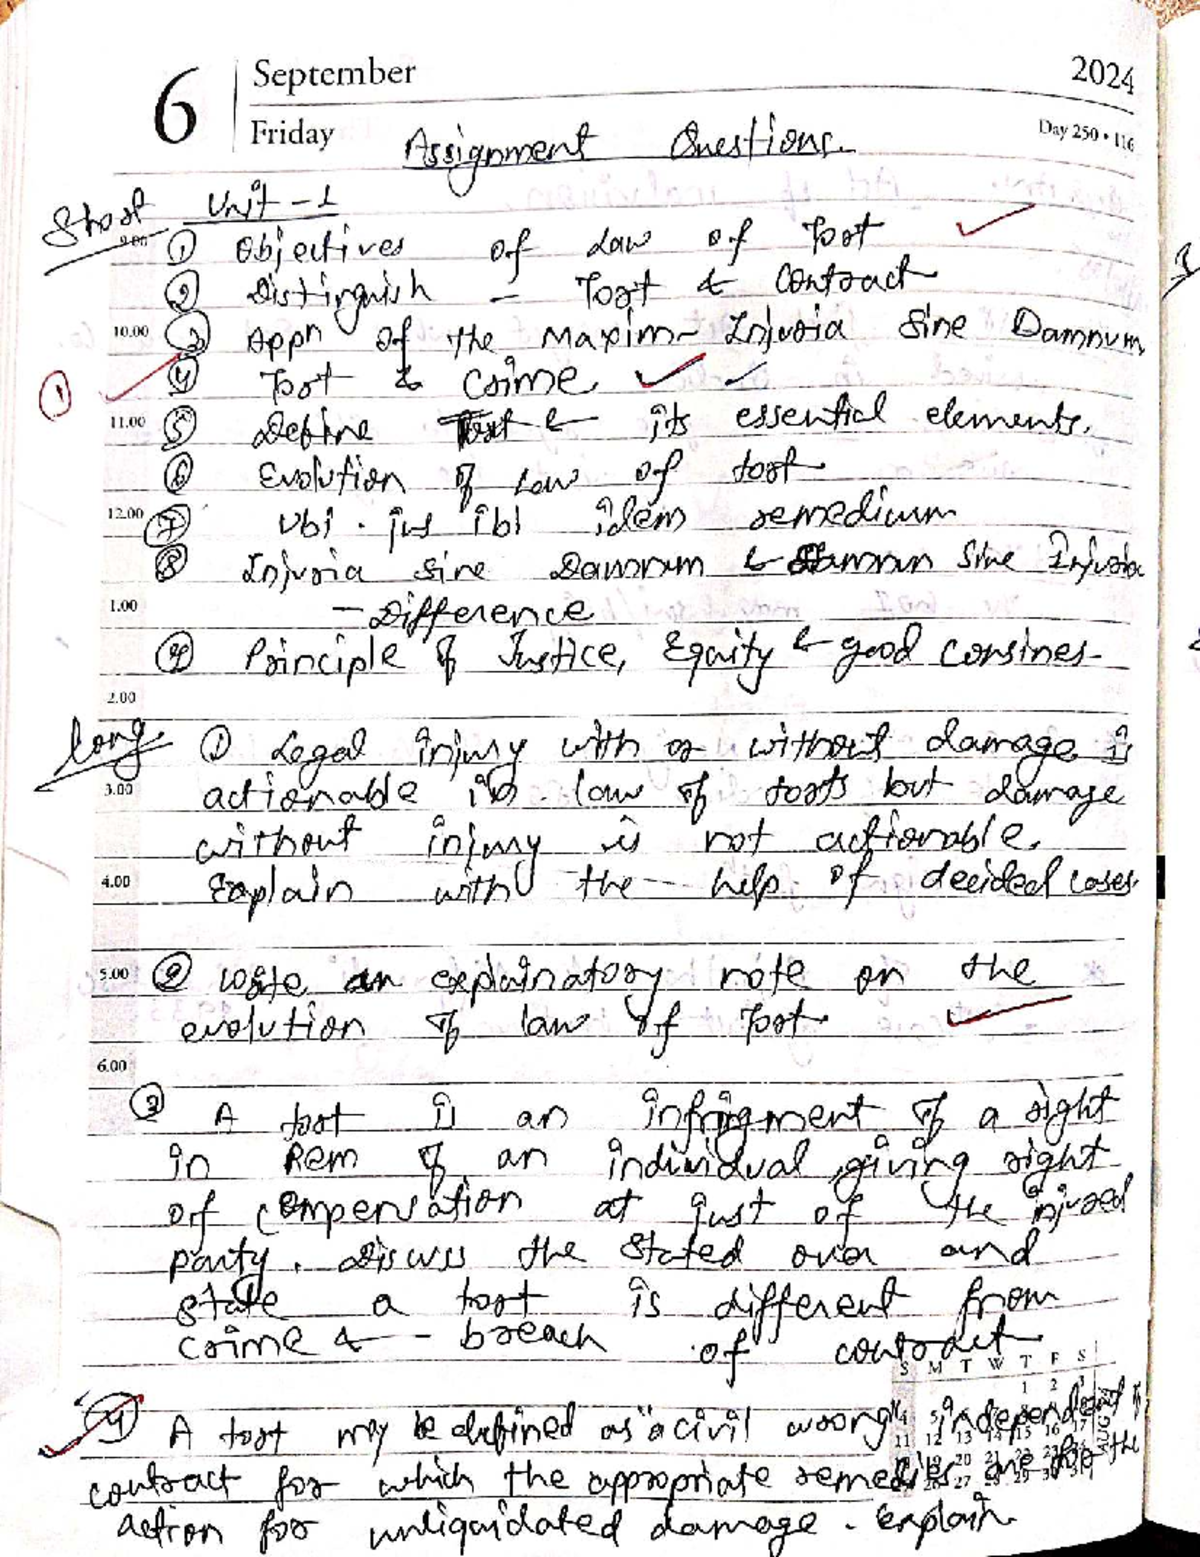 6 September 2024
Friday Day 250 • 116
Assignment Questions.
Short Unit - 1
9.00 ① Objectives of Law of Tort
② Distinguish - Tort & Contract
10.00 ③ Appn of the Maxim - Injuria Sine Damnum
① ④ Tort & Crime
11.00 ⑤ Define Tort & its essential elements.
⑥ Evolution of Law of tort
12.00 ⑦ Ubi. jus ibi idem remedium
⑧ Injuria sine Damnum & Damnun Sine Injuria
1.00 - Difference
⑨ Principle of Justice, Equity & good consines-
2.00
Long ① Legal injury with or without damage is
3.00 actionable in law of torts but damage
without injury is not actionable.
4.00 Explain with the help of decided cases
5.00 ② Write an explainatory note on the
evolution of law of Tort
6.00
③ A tort is an infrigment of a right
in Rem of an individual giving right
of compensation at just of the injured
party. Discuss the stated over and
state a tort is different from
crime & - breach of contract
S M T W T F S
④ A tort may be defined as "a civil wrong" independent of
contract for which the appropriate remedies are for the
action for unliquidated damage. explain
AUGUST